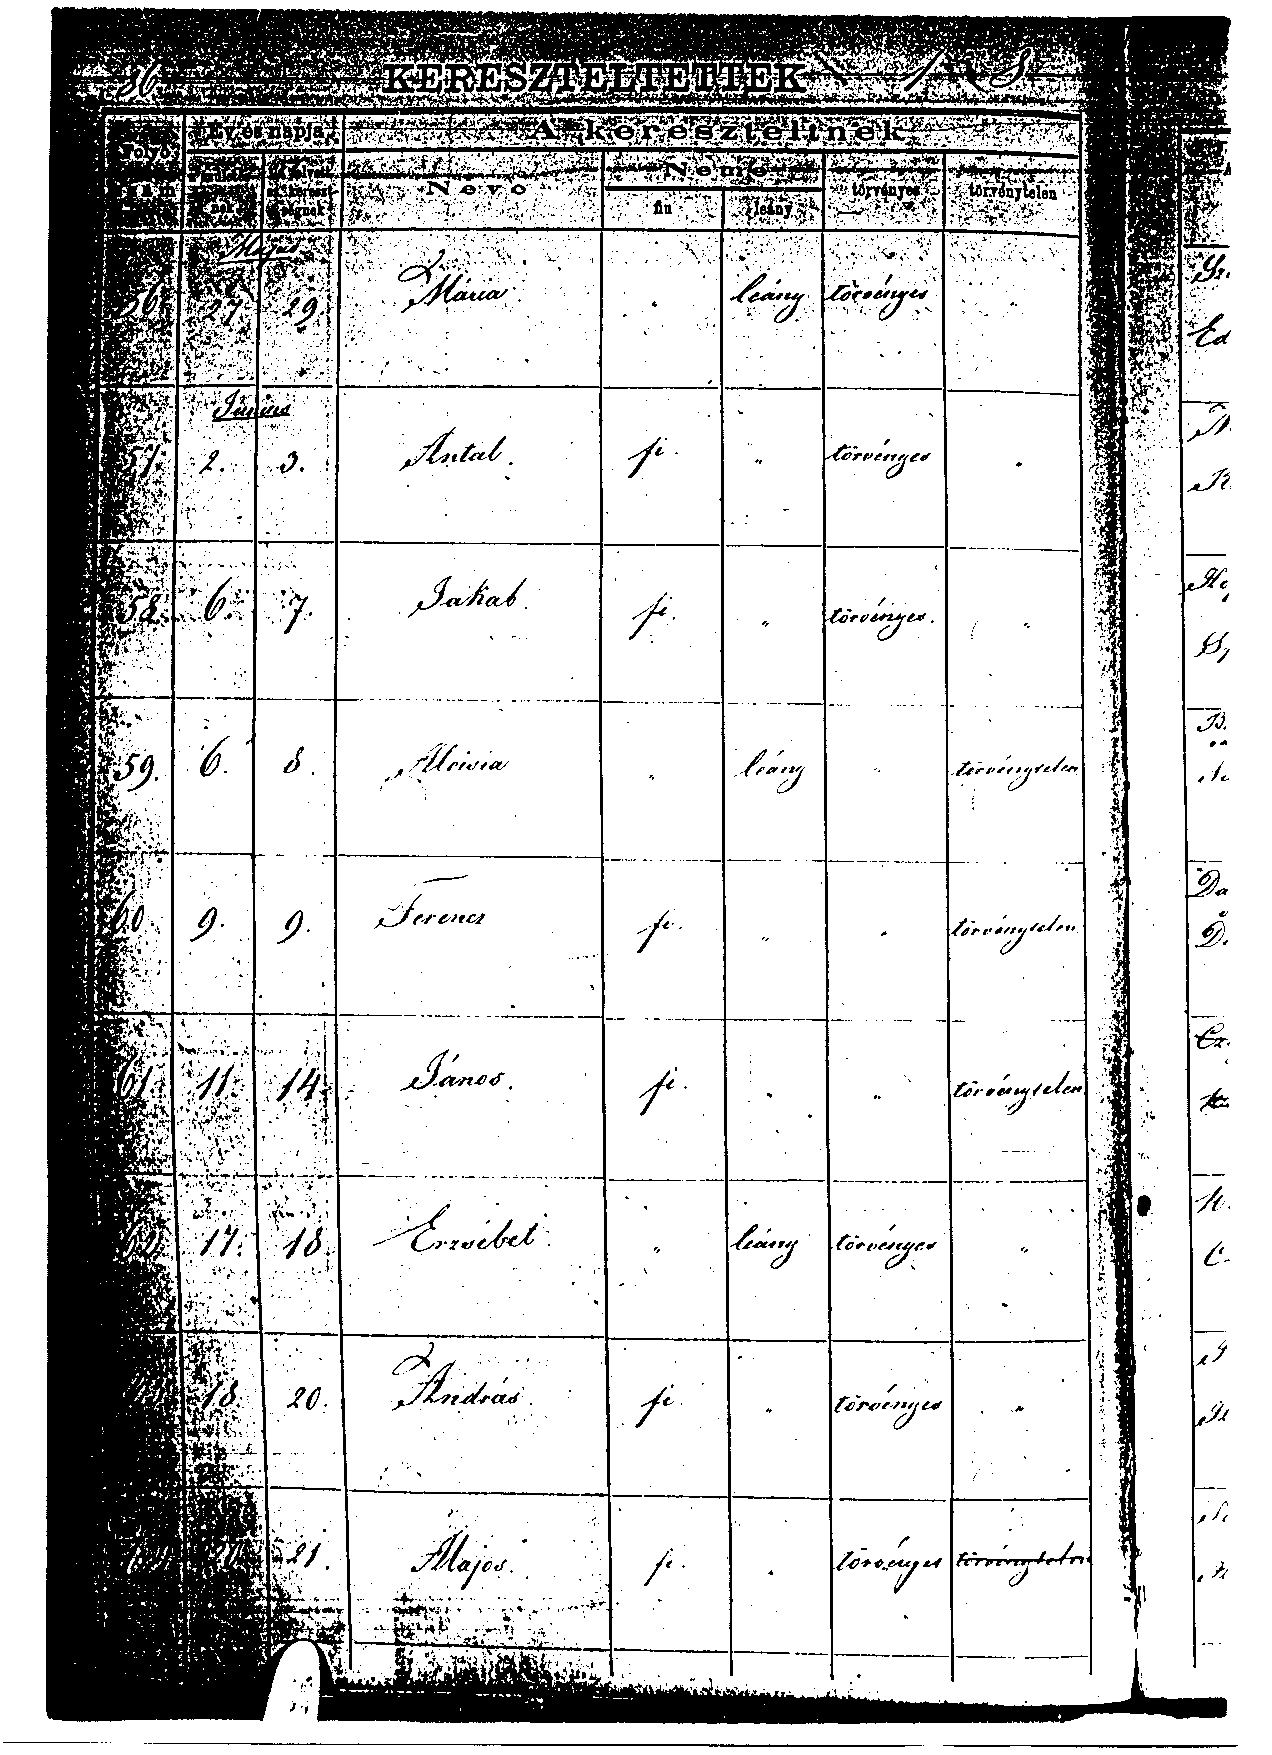 36 KERESZTELTETTEK
Folyó szám Év és napja A kereszteltnek
Neve Neme törvényes törvénytelen
fiu leány
Május
56. 27. 29. Mária " leány törvényes "
Június
57. 2. 3. Antal. fi. " törvényes "
58. 6. 7. Jakab. fi. " törvényes. "
59. 6. 8. Aloisia " leány " törvénytelen
60. 9. 9. Ferencz fi. " " törvénytelen
61. 11. 14. János. fi. " " törvénytelen
62. 17. 18. Erzsébet. " leány törvényes "
18. 20. András. fi. " törvényes "
20. 21. Alajos. fi. " törvényes törvénytelen